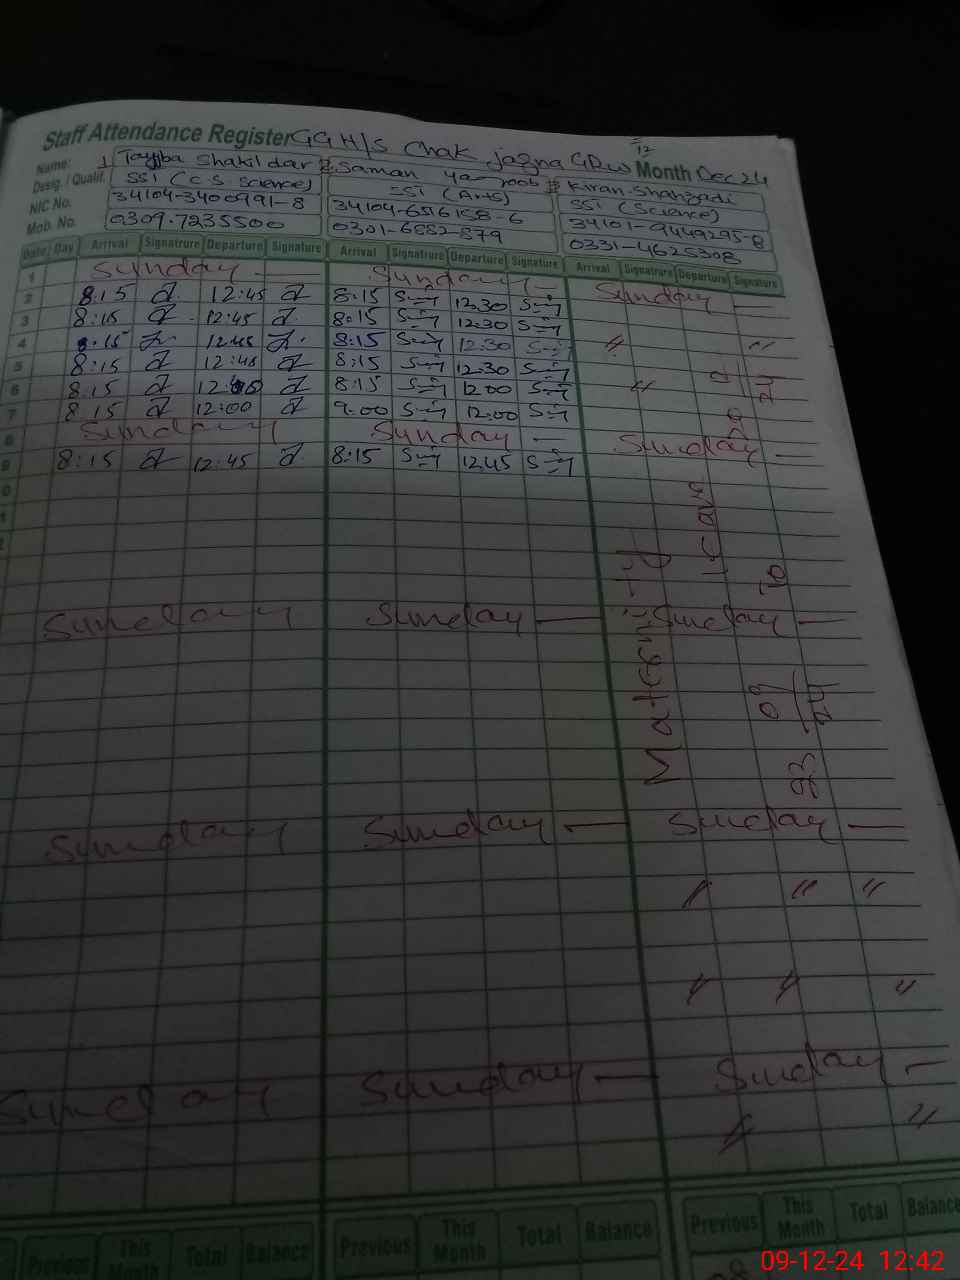 Staff Attendance Register GGH/S Chak Jagna GRW Month Dec 24
Name: 1 Tayyba Shakildar 2 Saman Yaqoob 3 Kiran Shahzadi
Desig. / Qualif. SSI (C.S Science) SSI (Arts) SSI (Science)
NIC No. 34104-3400991-8 34104-6516158-6 34101-9449295-8
Mob. No. 0309-7235500 0301-6882-879 0331-4625308
Date Day Arrival Signatrure Departure Signature Arrival Signatrure Departure Signature Arrival Signatrure Departure Signature
1 Sunday Sunday Sunday
2 8:15 12:45 8:15 12:30
3 8:15 12:45 8:15 12:30
4 8:15 12:45 8:15 12:30 " "
5 8:15 12:45 8:15 12:30
6 8:15 8:15 1200 "
7 8:15 12:00 9:00 12:00
8 Sunday Sunday Sunday
9 8:15 12:45 8:15 1245
Maternity Leave
24
to
23
09
24
Sunday Sunday Sunday
Sunday Sunday Sunday
" " "
" " "
Sunday Sunday Sunday
" "
Previous This Month Total Balance Previous This Month Total Balance Previous This Month Total Balance
09-12-24 12:42